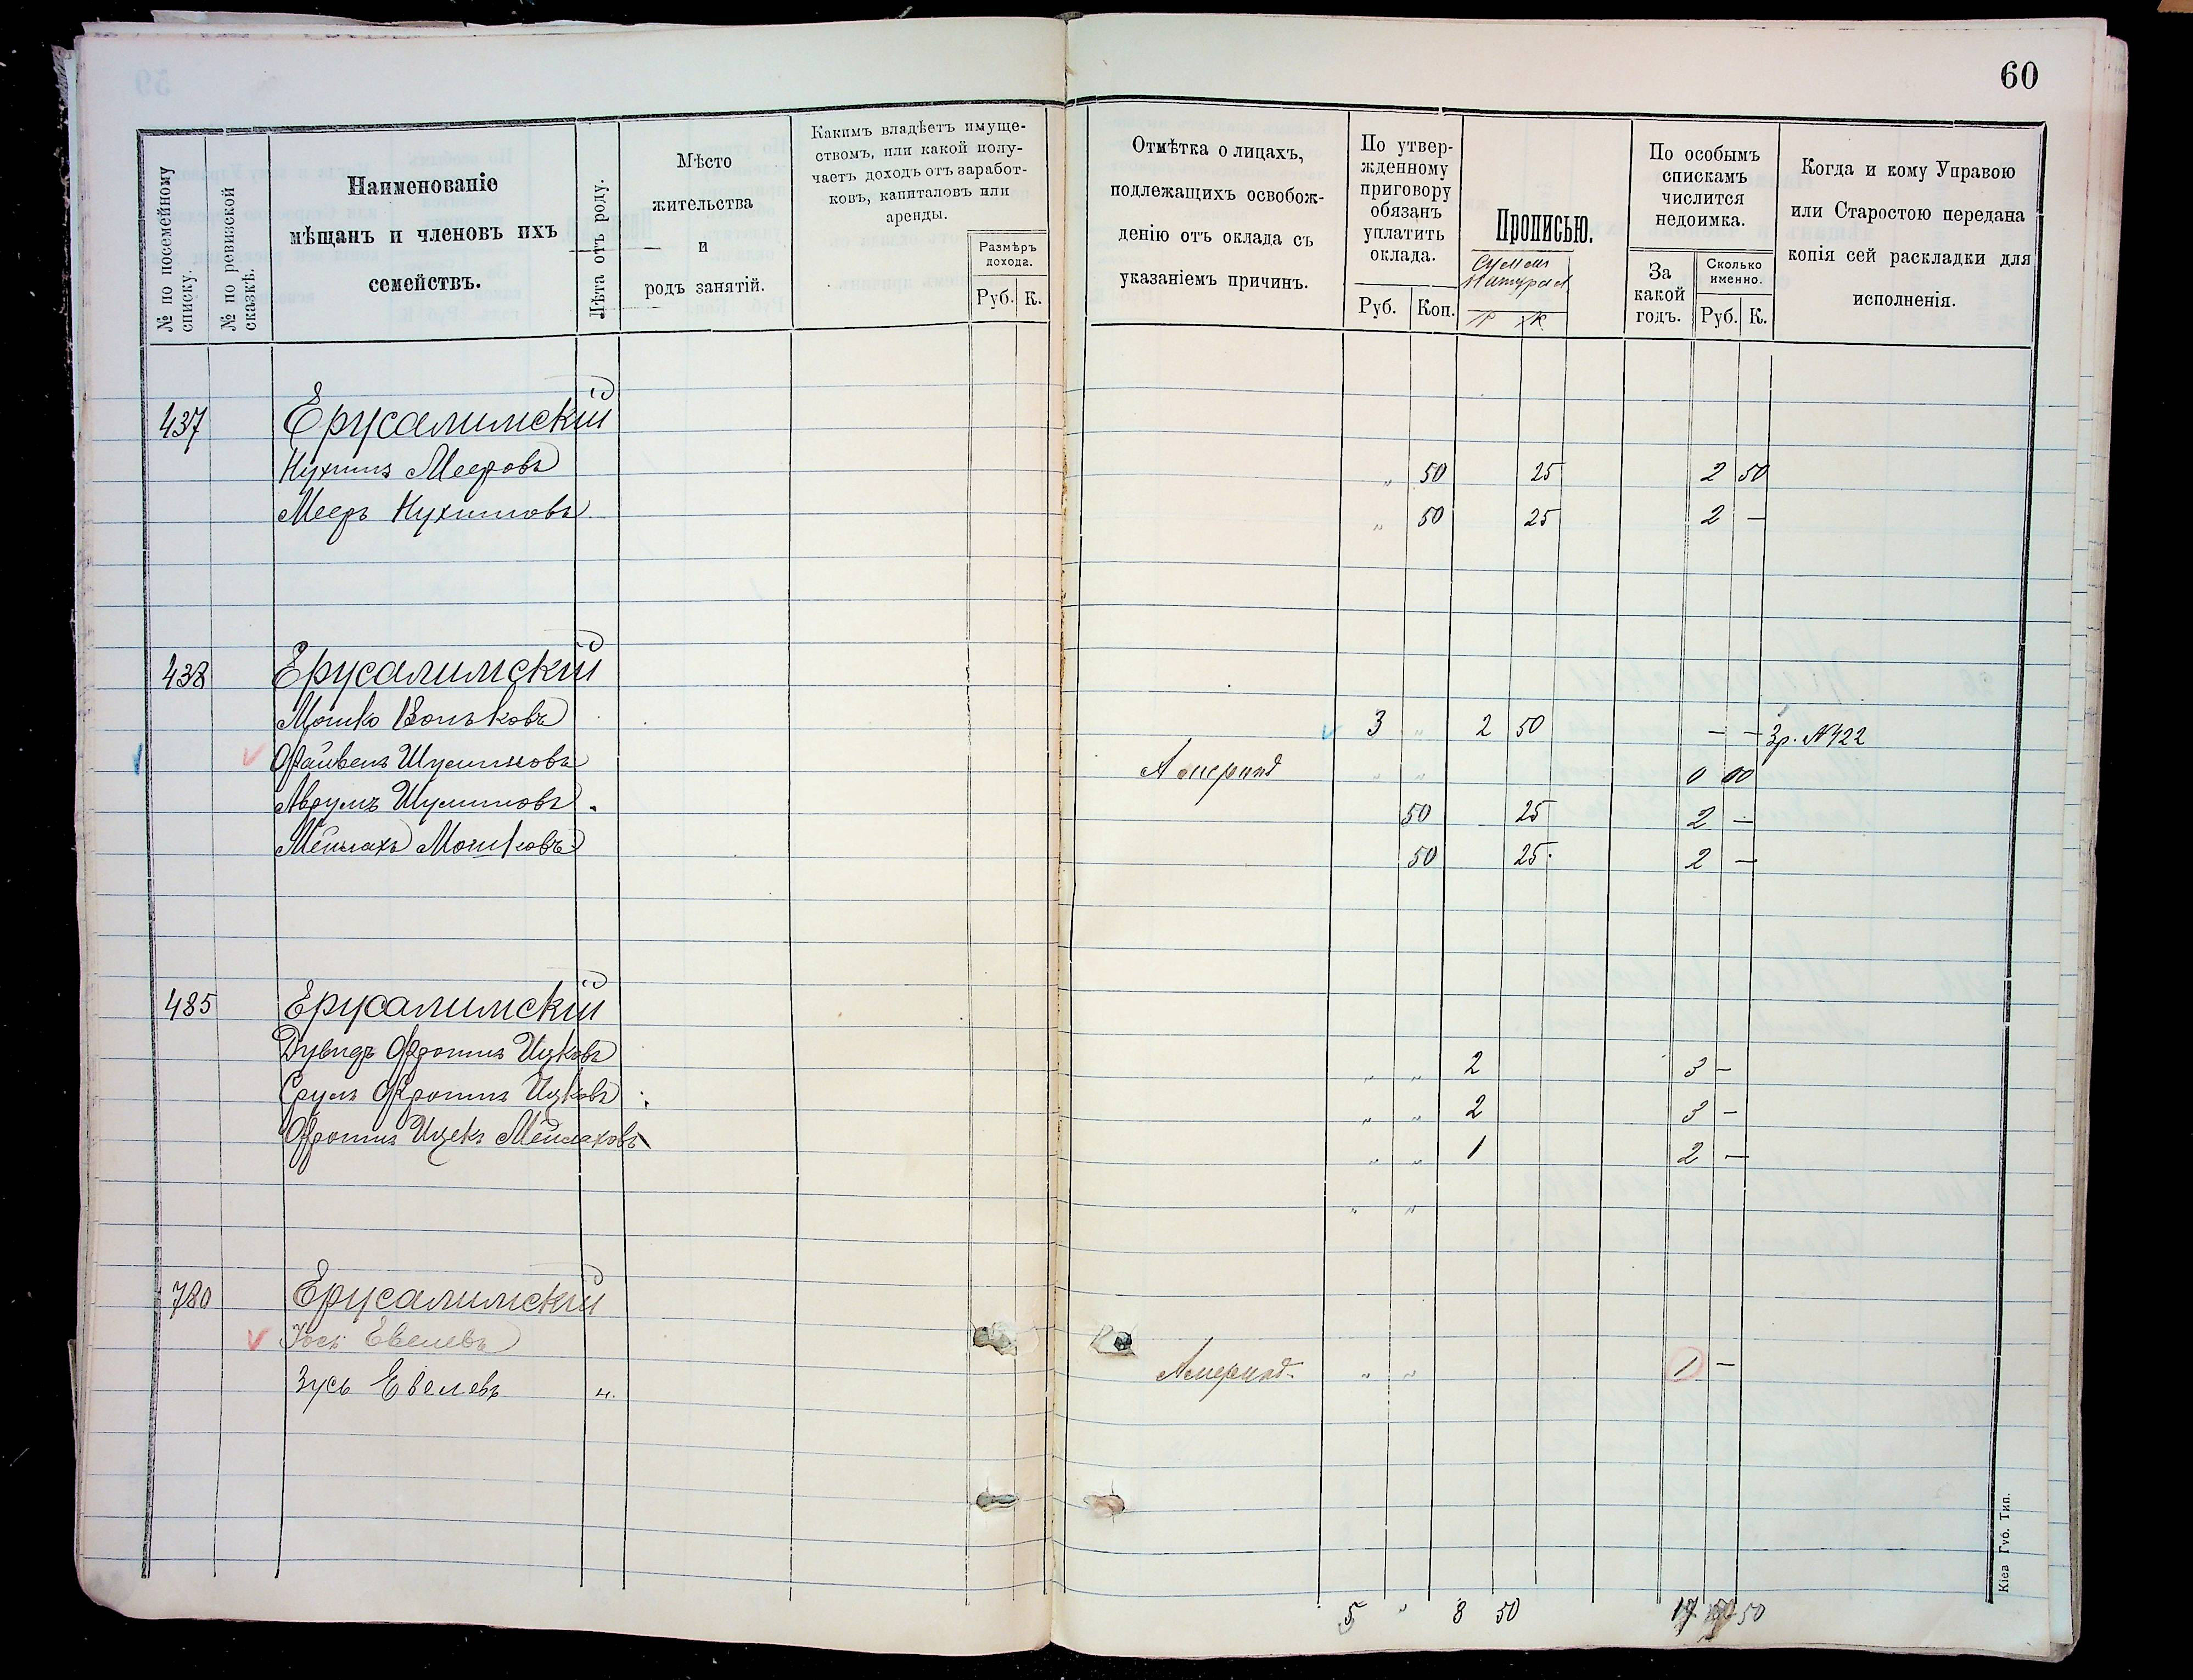 60
№ по посемейному списку.
№ по ревизской сказкѣ.
Наименованіе
мѣщанъ и членовъ ихъ
семействъ.
Лѣта отъ роду.
Мѣсто
жительства
и
родъ занятій.
Какимъ владѣетъ имуще-
ствомъ, или какой полу-
чаетъ доходъ отъ заработ-
ковъ, капиталовъ или
аренды.
Размѣръ
дохода.
Руб. К.
Отмѣтка о лицахъ,
подлежащихъ освобож-
денію отъ оклада съ
указаніемъ причинъ.
По утвер-
жденному
приговору
обязанъ
уплатить
оклада.
Руб. Коп.
Прописью.
Р К
По особымъ
спискамъ
числится
недоимка.
За
какой
годъ.
Сколько
именно.
Руб. К.
Когда и кому Управою
или Старостою передана
копія сей раскладки для
исполненія.
437 Ерусалимскій
Нухимъ Мееровъ " 50 25 2 50
Мееръ Нухимовъ " 50 25 2 —
438 Ерусалимскій
Мошко Вольковъ 3 " 2 50 — — Зр. №422
Файвель Шулимовъ " " 0 00
Аврумъ Шулимовъ 50 25 2 —
Мейлахъ Мошковъ 50 25 2 —
485 Ерусалимскій
Дувидъ Фроимъ Ицковъ " " 2 3 —
Сруль Фроимъ Ицковъ " " 2 3 —
Фроимъ Ицекъ Мейлаховъ " " 1 2 —
" "
780 Ерусалимскій
Іось Евелевъ " " 1 —
Зусь Евелевъ
5 " 8 50 50
Кіев Губ. Тип.